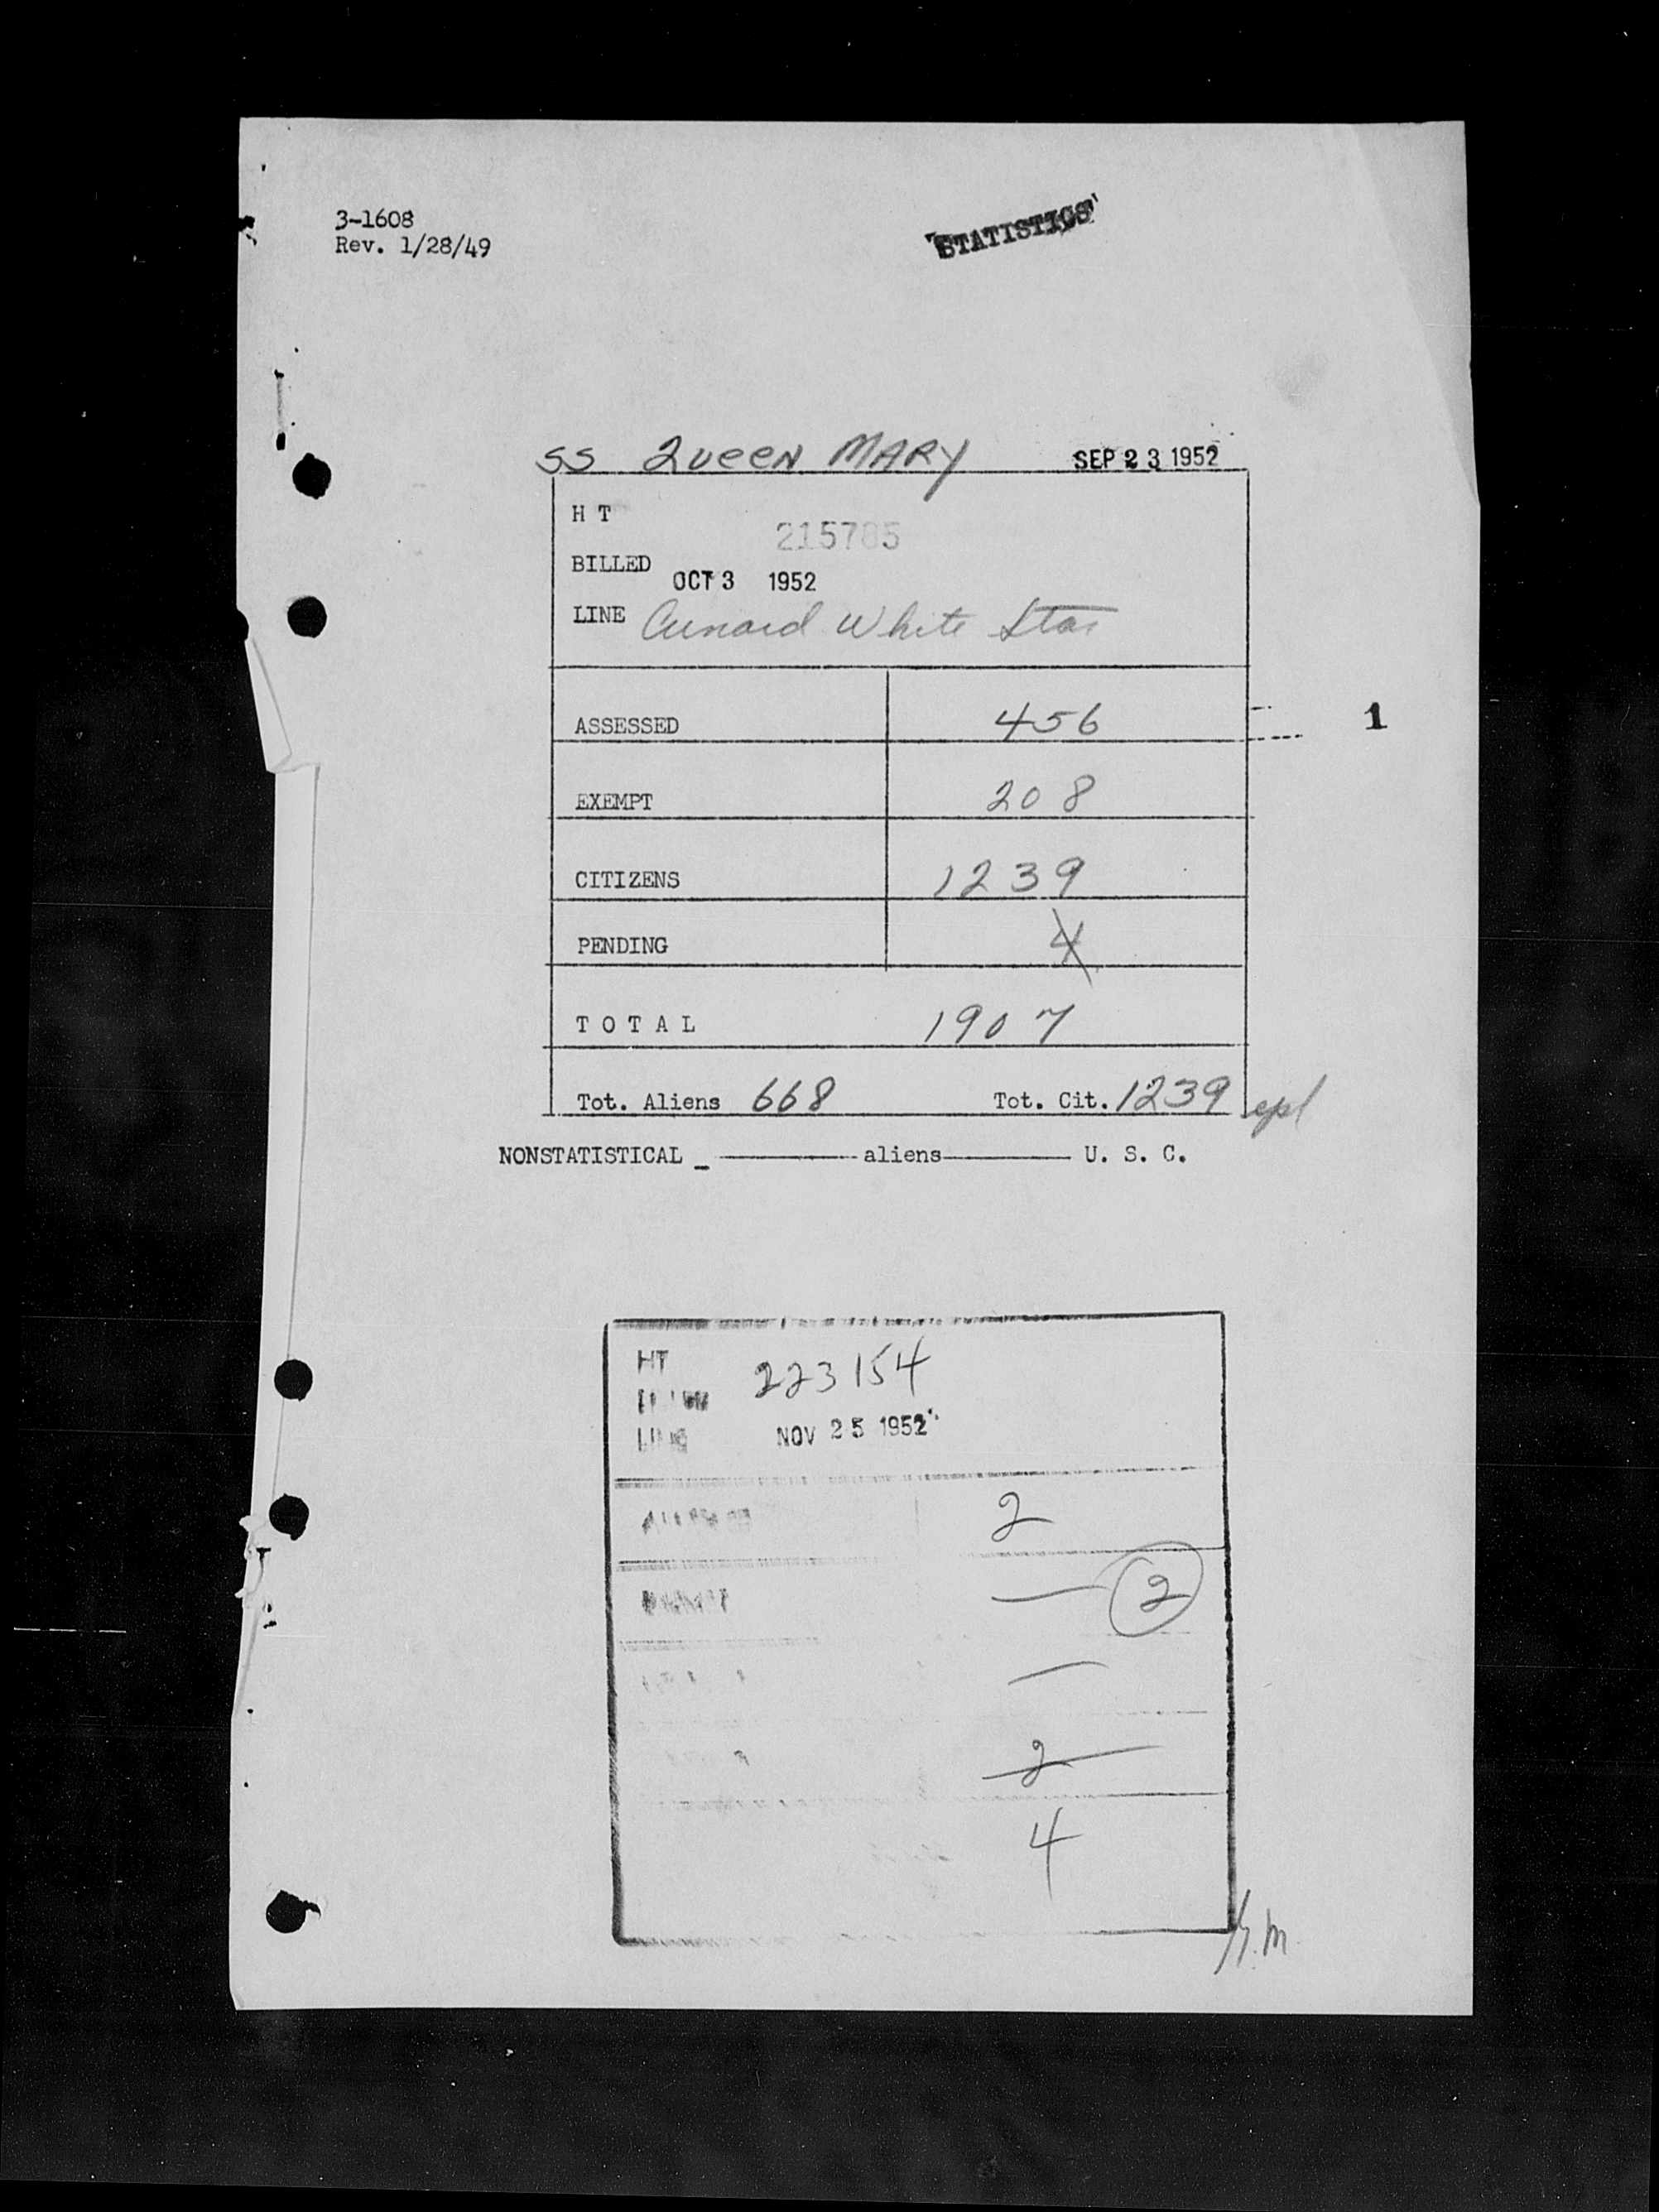 3-1608
Rev. 1/28/49
STATISTICS
SS QUEEN MARY SEP 23 1952
H T
215785
BILLED
OCT 3 1952
LINE Cunard White Star
ASSESSED 456
1
EXEMPT 208
CITIZENS 1239
PENDING 4
TOTAL 1907
Tot. Aliens 668 Tot. Cit. 1239 epl
NONSTATISTICAL _ ---- aliens ---- U. S. C.
HT 223154
LINE NOV 25 1952
2
— 2
—
2
4